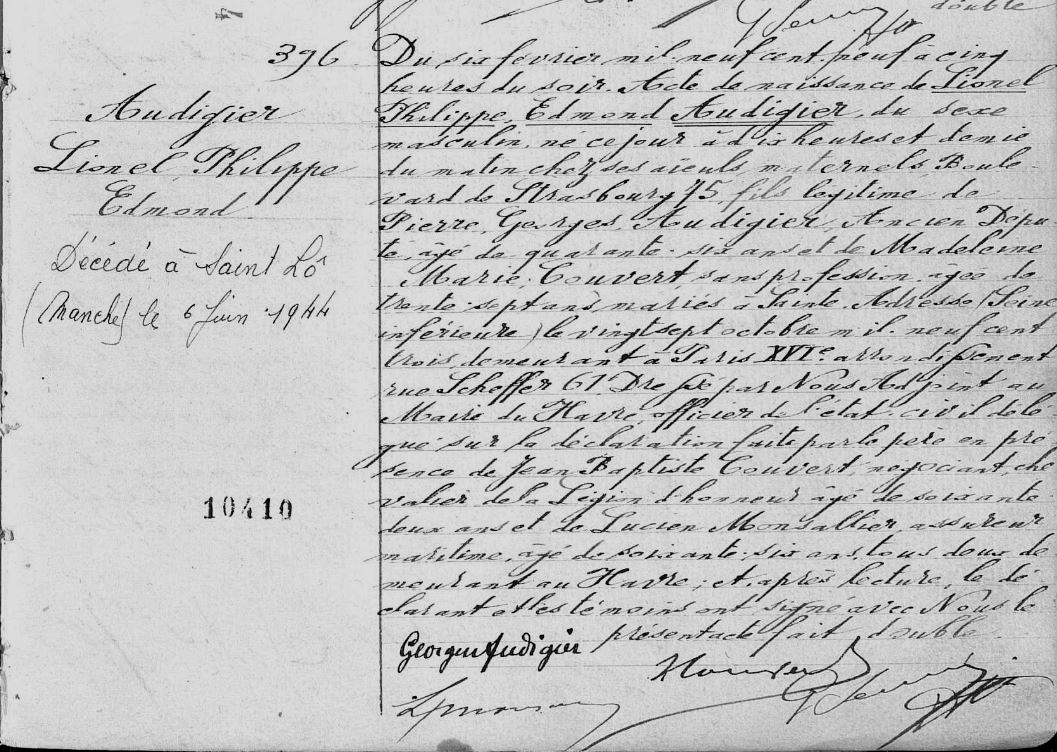 double
396
Audigier
Lionel, Philippe
Edmond
Décédé à Saint Lô
(Manche) le 6 Juin 1944
10410
Du six février mil neuf cent neuf à cinq
heures du soir. Acte de naissance de Lionel
Philippe, Edmond Audigier, du sexe
masculin, né ce jour à dix heures et demie
du matin chez ses aïeuls maternels Boule
vard de Strasbourg 75, fils légitime de
Pierre, Georges, Audigier, Ancien Dépu
té, âgé de quarante-six ans et de Madeleine
Marie, Couvert, sans profession, agée de
trente-sept ans, mariés à Sainte Adresse (Seine
inférieure) le vingt sept octobre mil neuf cent
trois, demeurant à Paris XVIe arrondissement
rue Scheffer 61. Dressé par Nous Adjoint au
Maire du Havre, officier de l'état-civil délé
gué sur la déclaration faite par le père en pré
sence de Jean Baptiste Couvert, négociant, che
valier de la Légion d'honneur âgé de soixante
deux ans et de Lucien Monsallier, assureur
maritime, âgé de soixante-six ans, tous deux de
meurant au Havre; et, après lecture, le dé
clarant et les témoins ont signé avec Nous le
présent acte fait double.
Georges Audigier